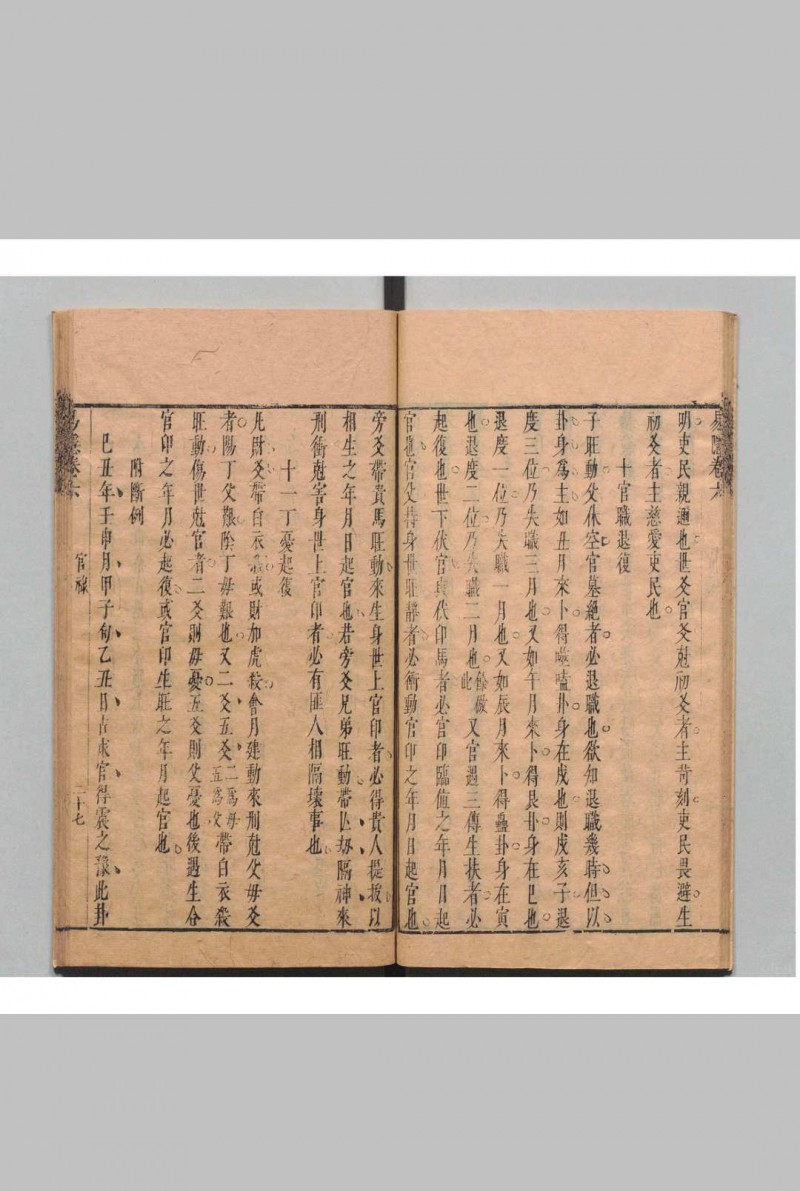 易隱卷六
明吏民親通也世爻官爻尅初爻者主苛刻吏民畏避生
初爻者主慈愛吏民也
十官職退復
子旺動父休空官墓絕者必退職也欲知退職幾時但以
卦身為主如丑月來卜得噬嗑卦身在戌也則戌亥子退
度三位乃失職三月也又如午月來卜得艮卦身在巳也
退度一位乃失職一月也又如辰月來卜得蠱卦身在寅
也退度二位乃失職二月也餘倣此又官遇三傳生扶者必
起復也世下伏官貞伏印馬者必官印臨值之年月日起
官也官父持身世旺靜者必衝動官印之年月日起官也
旁爻帶貴馬旺動來生身世上官印者必得貴人提拔以
相生之年月日起官也若旁爻兄弟旺動帶亾刼隔神來
刑衝尅害身世上官印者必有匪人相隔壞事也
十一丁憂起復
凡財爻帶白衣殺或財加虎殺會月建動來刑尅父母爻
者陽丁父艱陰丁母艱也又二爻五爻二為母五為父帶白衣殺
旺動傷世尅官者二爻則母憂五爻則父憂也後遇生合
官印之年月必起復或官印生旺之年月起官也
附斷例
己丑年壬申月甲子旬乙丑日占求官得震之豫此卦
易隱卷六
官祿
二十七